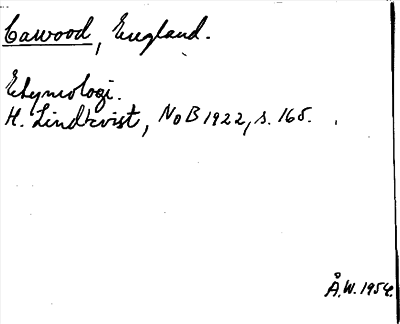 Cawood, England.
Etymologi.
H. Lindkvist, NoB 1922, s. 165.
Å.W. 1954.